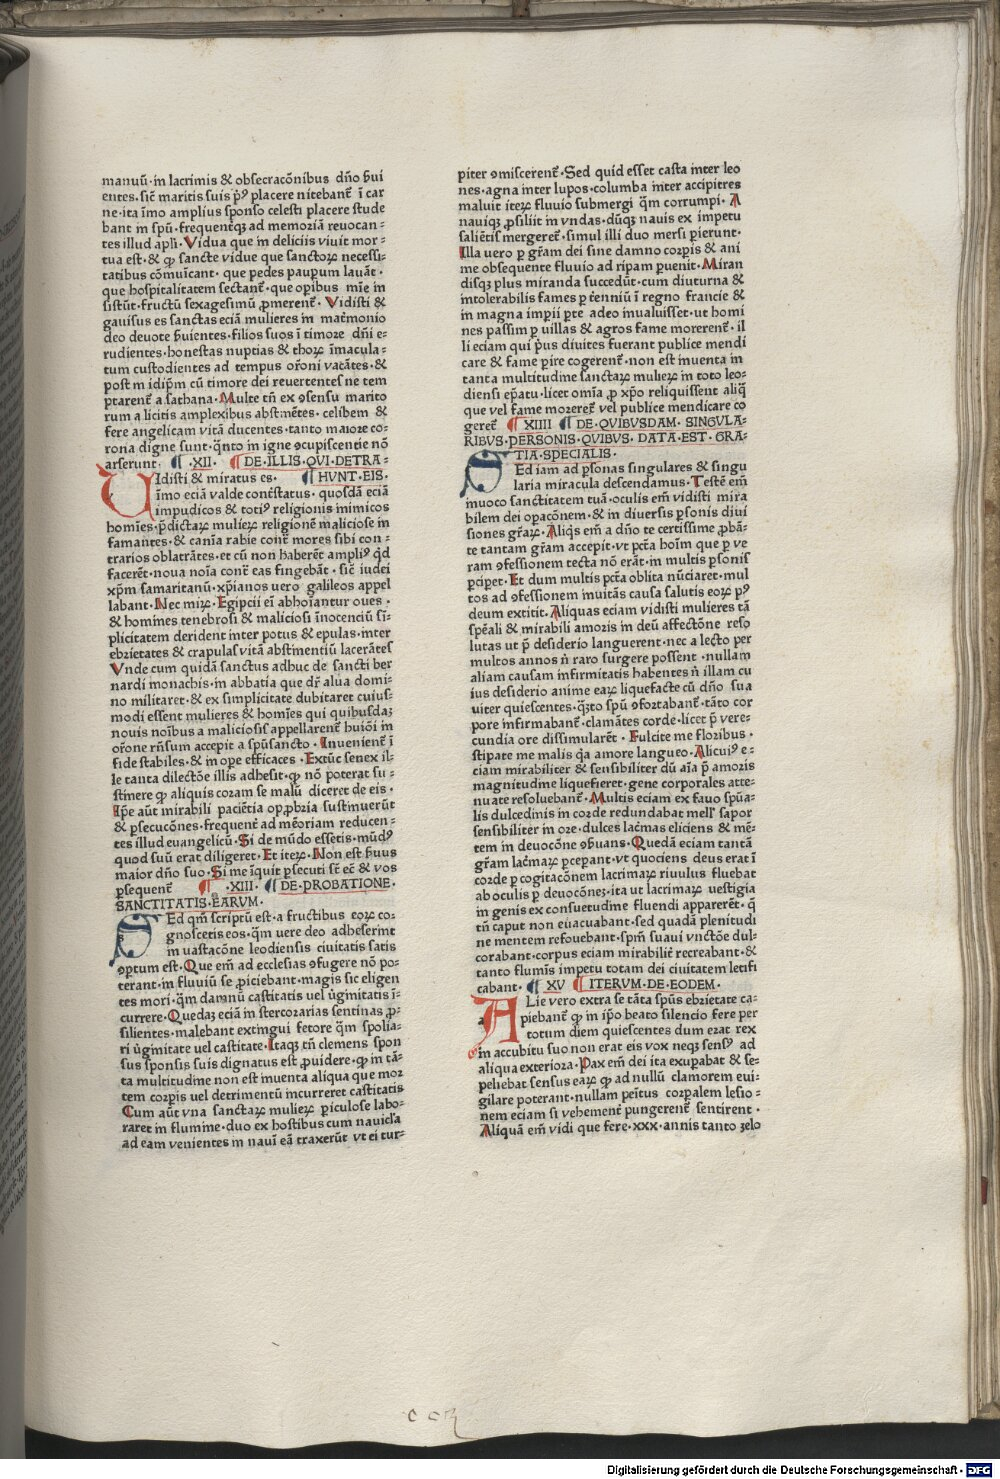 manuū·in lacrimis & obsecracōnibus dño ẜui
entes·sic̄ maritis suis p̄ꝰ placere nitebant̄ ī car
ne·ita īmo amplius sponso celesti placere stude
bant in spū·frequentꝙ ad memoriā reuocan-
tes illud apli·Vidua que in deliciis viuit mor-
tua est·& ꝙ sancte vidue que sanctoꝝ necessi-
tatibus cōmuīcant·que pedes pauꝑum lauāt·
que hospitalitatem sectant̄·que opibus mīe in
sistūt·fructū sexagesimū ꝓmerent̄·Vidisti &
gauisus es sanctas eciā mulieres in mat̄monio
deo deuote ẜuientes·filios suos ī timore dñi e-
rudientes·honestas nuptias & thoꝝ īmacula-
tum custodientes ad tempus or̄oni vacātes·&
post in idip̄m cū timore dei reuertentes ne tem
ptarent̄ a sathana·Multe tñ ex ɔsensu marito
rum a licitis amplexibus abstinētes·celibem &
fere angelicam vitā ducentes·tanto maiore co-
rona digne sunt·q̄nto in igne ɔcupiscentie nō
arserunt· ¶ ·XII· ¶ DE·ILLIS·QVI·DETRA-
UIdisti & miratus es· ¶ HVNT·EIS·
īmo eciā valde con̄tstatus·quosdā eciā
impudicos & totiꝰ religionis inimicos
homīes·p̄dictaꝝ mulieꝝ religionē maliciose in
famantes·& canīa rabie cont̄ mores sibi con-
trarios oblatrātes·et cū non haberēt ampliꝰ qd̄
facerēt·noua noīa cont̄ eas fingebāt·sic̄ iudei
xp̄m samaritanū·xp̄ianos uero galileos appel
labant·Nec miꝝ·Egipcii eī abhoīantur oues·
& homines tenebrosi & maliciosi īnocenciū si-
plicitatem derident inter potus & epulas·inter
ebrietates & crapulas vitā abstinentiū lacerātes
Vnde cum quidā sanctus adhuc de sancti ber
nardi monachis·in abbatia que dr̄ alua domi-
no militaret·& ex simplicitate dubitaret cuius-
modi essent mulieres & homīes qui quibusdaꝫ
nouis noībus a maliciosis appellarent̄ huiōi in
or̄one rñsum accepit a spūsancto·Inuenient̄ ī
fide stabiles·& in ope efficaces·Extūc senex il-
le tanta dilectōe illis adhesit·ꝙ nō poterat su-
stinere ꝙ aliquis coram se malū diceret de eis·
Ip̄e aūt mirabili paciētia oꝓꝑbria sustinuerūt
& ꝑsecucōnes·frequent̄ ad mēoriam reducen-
tes illud euangelicū·Si de mūdo essetis·mūdꝰ
quod suū erat diligeret·Et iteꝝ·Non est ẜuus
maior dño suo·Si me īquit ꝑsecuti sc̄ ec̄ & vos
ꝑsequent̄ ¶ ·XIII· ¶ DE·PROBATIONE·
SANCTITATIS·EARVM·
SEd qm̄ scriptū est·a fructibus eoꝝ co-
gnoscetis eos·q̄m uere deo adheserint
in uastacōne leodiensis ciuitatis satis
ɔptum est·Que em̄ ad ecclesias ɔfugere nō po-
terant·in fluuiū se ꝓiciebant·magis sic eligen
tes mori·q̄m damnū castitatis uel v̄ginitatis ī-
currere·Quedaꝫ eciā in stercozarias sentinas ꝓ-
silientes·malebant extingui fetore q̄m spolia-
ri v̄ginitate uel castitate·Itaqꝫ tñ clemens spon
sus sponsis suis dignatus est ꝓuidere·ꝙ in tā-
ta multitudine non est inuenta aliqua que moꝛ
tem corꝑis uel detrimentū incurreret castitatis
Cum aūt vna sanctaꝝ mulieꝝ ꝑiculose labo-
raret in flumine·duo ex hostibus cum nauicl̄a
ad eam venientes in nauī eā traxerūt vt ei tur-
piter ɔmiscerent̄·Sed quid esset casta inter leo
nes·agna inter lupos·columba inter accipitres
maluit iteꝝ fluuio submergi q̄m corrumpi·A
nauiqꝫ ꝓsiliit in vndas·dūqꝫ nauis ex impetu
saliētis mergeret̄·simul illi duo mersi ꝑierunt·
Illa uero ꝑ gr̄am dei sine damno coꝛꝑis & ani
me obsequente fluuio ad ripam ꝑuenit·Miran
disqꝫ plus miranda succedūt·cum diuturna &
intolerabilis fames ꝑ t̄enniū ī regno francie &
in magna impii ꝑte adeo inualuisset·ut homi
nes passim ꝑ uillas & agros fame morerent̄·il
li eciam qui p̄us diuites fuerant publice mendi
care & fame ꝑire cogerent̄·non est inuenta in
tanta multitudine sanctaꝝ mulieꝝ in toto leo-
diensi ep̄atu·licet omīa ꝓ xp̄o reliquissent aliq̄
que vel fame moreret̄ vel publice mendicare co
geret̄ ¶ XIIII ¶ DE·QVIBVSDAM·SINGVLA-
RIBVS·PERSONIS·QVIBVS·DATA·EST·GRA-
TIA·SPECIALIS·
SEd iam ad ꝑsonas singulares & singu
laria miracula descendamus·Testē em̄
inuoco sanctitatem tuā·oculis em̄ vidisti mira
bilem dei opacōnem·& in diuersis ꝑsonis diui
siones gr̄aꝝ·Aliqs em̄ a dño te certissime ꝓbā-
te tantam gr̄am accepit·vt pct̄a hoīm que ꝑ ve
ram ɔfessionem tecta nō erāt·in multis ꝑsonis
ꝑciꝑet·Et dum multis pct̄a oblita nūciaret·mul
tos ad ɔfessionem inuitās causa salutis eoꝝ pꝰ
deum extitit·Aliquas eciam vidisti mulieres tā
spēali & mirabili amoris in deū affectōne reso
lutas ut p̄ desiderio languerent·nec a lecto per
multos annos n̄ raro surgere possent·nullam
aliam causam infirmitatis habentes n̄ illam cu
ius desiderio anime eaꝝ liquefacte cū dño sua
uiter quiescentes·q̄ꝫto spū ɔfortabant̄·tāto cor
pore infirmabant̄·clamātes corde·licet p̄ vere-
cundia ore dissimularēt·Fulcite me floribus·
stipate me malis q̄a amore langueo·Alicuiꝰ e-
ciam mirabiliter & sensibiliter dū aīa p̄ amoris
magnitudine liquefieret·gene corporales atte-
nuate resoluebant̄·Multis eciam ex fauo spūa-
lis dulcedinis in coꝛde redundabat mellꝭ sapor
sensibiliter in ore·dulces lac̄mas eliciens & mē-
tem in deuocōne ɔẜuans·Quedā eciam tantā
gr̄am lac̄maꝝ ꝑcepant·vt quociens deus erat ī
coꝛde ꝑ cogitacōnem lacrimaꝝ riuulus fluebat
ab oculis ꝑ deuocōneꝫ·ita ut lacrimaꝝ uestigia
in genis ex consuetudine fluendi apparerēt·q̄
tñ caput non euacuabant·sed quadā plenitudi
ne mentem refouebant·spm̄ suaui vnctōe dul-
corabant·corpus eciam mirabilit̄ recreabant·&
tanto flumīs impetu totam dei ciuitatem letifi
cabant· ¶ XV ¶ ITERVM·DE·EODEM·
ALie vero extra se tāta spūs ebrietate ca-
piebant̄ ꝙ in ip̄o beato silencio fere per
totum diem quiescentes dum erat rex
in accubitu suo non erat eis vox neqꝫ sensꝰ ad
aliqua exteriora·Pax em̄ dei ita exuꝑabat & se-
peliebat sensus eaꝝ ꝙ ad nullū clamorem eui-
gilare poterant·nullam peīntus corꝑalem lesio-
nem eciam si vehement̄ pungerent̄ sentirent·
Aliquā em̄ vidi que fere·xxx·annis tanto zelo
Digitalisierung gefördert durch die Deutsche Forschungsgemeinschaft - DFG